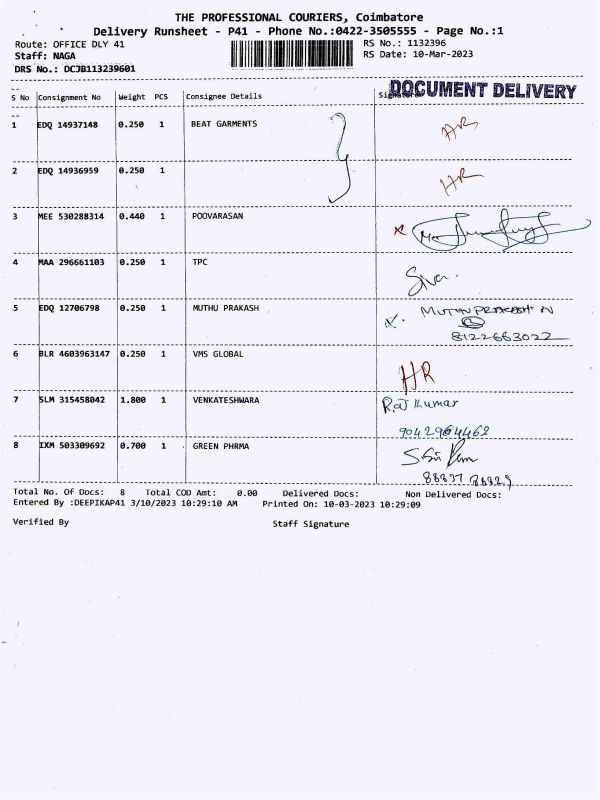 THE PROFESSIONAL COURIERS, Coimbatore
Delivery Runsheet - P41 - Phone No.:0422-3505555 - Page No.:1
Route: OFFICE DLY 41
RS No.: 1132396
Staff: NAGA
RS Date: 10-Mar-2023
DRS No.: DCJB113239601
DOCUMENT DELIVERY
S No Consignment No Weight PCS Consignee Details Signature
1 EDQ 14937148 0.250 1 BEAT GARMENTS HR
2 EDQ 14936959 0.250 1 HR
3 MEE 530288314 0.440 1 POOVARASAN
4 MAA 296661103 0.250 1 TPC Siva.
5 EDQ 12706798 0.250 1 MUTHU PRAKASH MUTHU PRAKASH N
8122663022
6 BLR 4603963147 0.250 1 VMS GLOBAL HR
7 SLM 315458042 1.800 1 VENKATESHWARA Raj Kumar
9042964462
8 IXM 503309692 0.700 1 GREEN PHRMA
Total No. Of Docs: 8 Total COD Amt: 0.00 Delivered Docs: Non Delivered Docs:
Entered By :DEEPIKAP41 3/10/2023 10:29:10 AM Printed On: 10-03-2023 10:29:09
Verified By Staff Signature